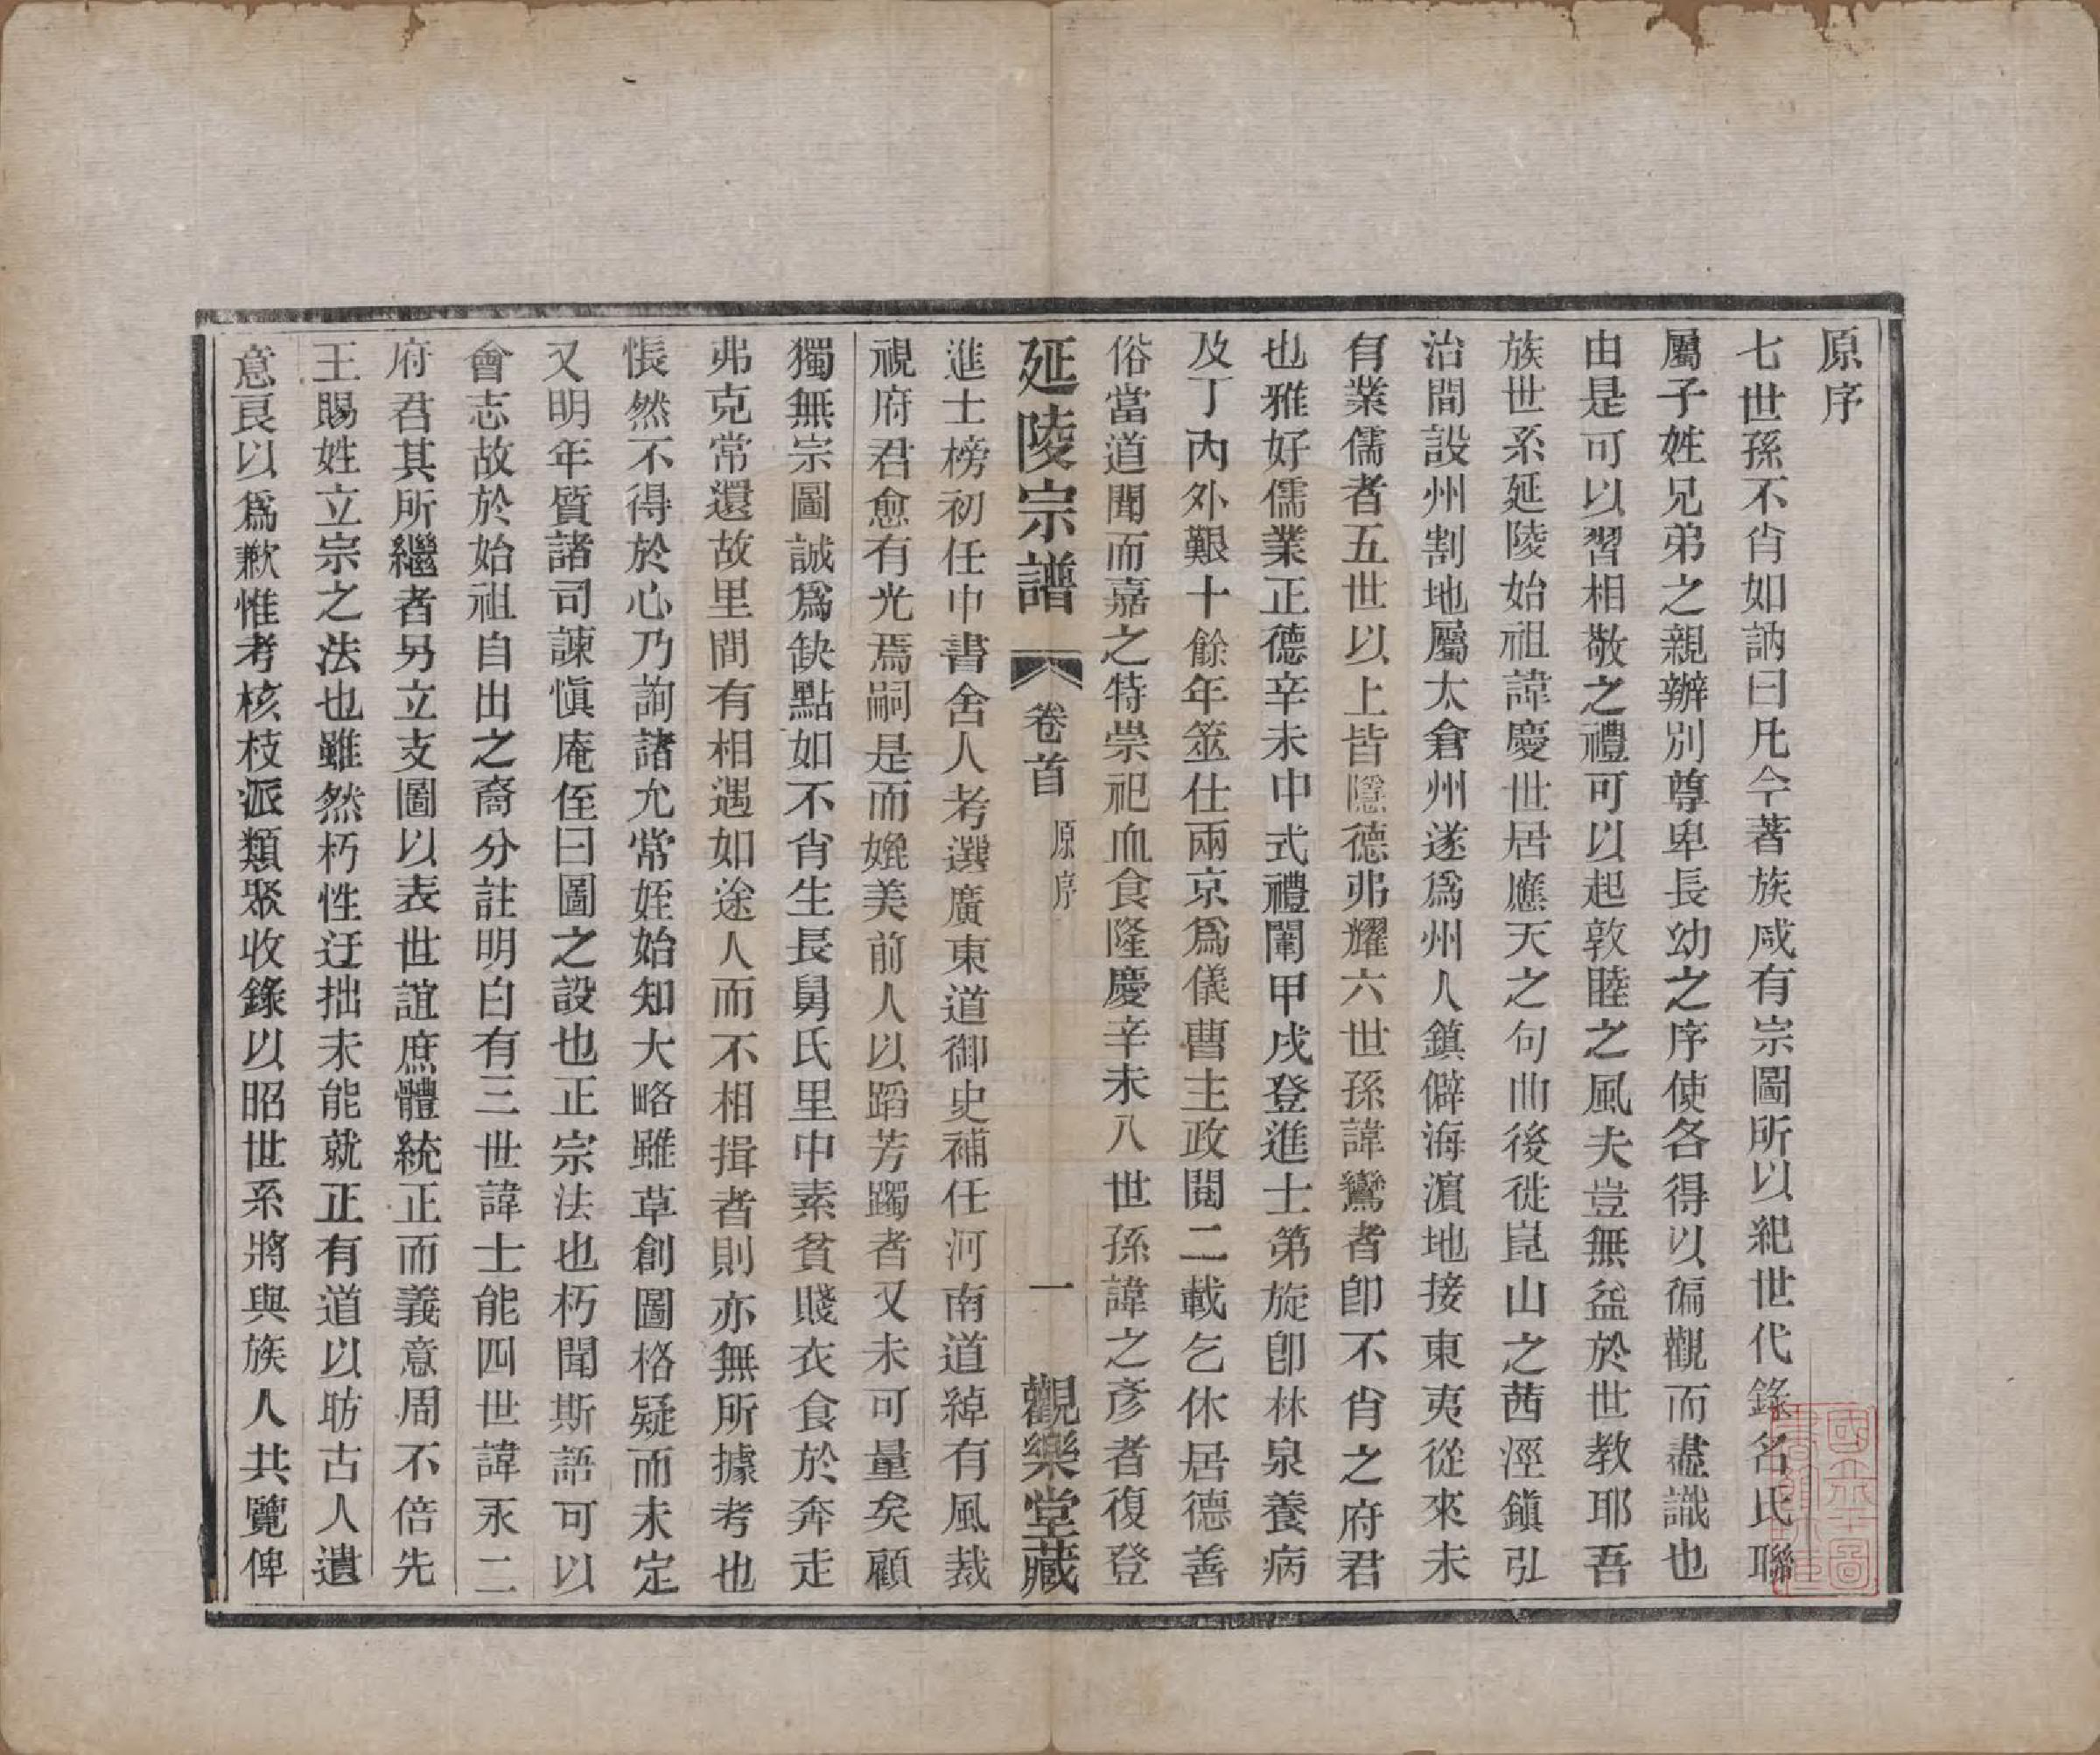 原序
七世孫不肖如訥曰凡今著族咸有宗圖所以紀世代錄名氏聯
屬子姓兄弟之親辦別尊卑長幼之序使各得以徧觀而盡識也
由是可以習相敬之禮可以起敦睦之風夫豈無益於世教耶吾
族世系延陵始祖諱慶世居應天之句曲後徙崑山之茜涇鎮弘
治間設州割地屬太倉州遂爲州人鎮僻海濵地接東夷從來未
有業儒者五世以上皆隱德弗耀六世孫諱鸞者卽不肖之府君
也雅好儒業正德辛未中式禮闈甲戌登進士第旋卽林泉養病
及丁內外艱十餘年筮仕兩京爲儀曹主政閱二載乞休居德善
俗當道聞而嘉之特崇祀血食隆慶辛未八世孫諱之彥者復登
延陵宗譜 卷首 原序 一 觀樂堂藏
進士榜初任中書舍人考選廣東道御史補任河南道綽有風裁
視府君愈有光焉嗣是而媲美前人以蹈芳躅者又未可量矣顧
獨無宗圖誠爲缺點如不肖生長舅氏里中素貧賤衣食於奔走
弗克常還故里間有相遇如途人而不相揖者則亦無所據考也
悵然不得於心乃詢諸允常姪始知大略雖草創圖格疑而未定
又明年質諸司諫愼庵侄曰圖之設也正宗法也朽聞斯語可以
會志故於始祖自出之裔分註明白有三世諱士能四世諱永二
府君其所繼者另立支圖以表世誼庶體統正而義意周不倍先
王賜姓立宗之法也雖然朽性迂拙未能就正有道以昉古人遺
意良以爲歉惟考核枝派類聚收錄以昭世系將與族人共覽俾